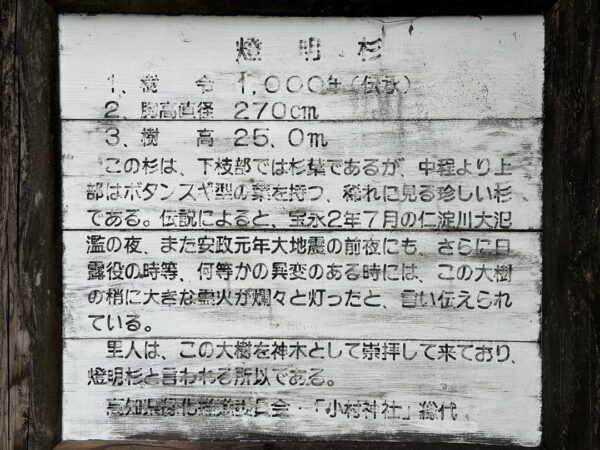 燈明杉
1、樹 令 1,000年(伝说)
2、胸高直径 270cm
3、樹 高 25.0m
この杉は、下枝部では杉葉であるが、中程より上
部はボタンスギ型の葉を持つ、稀れに見る珍しい杉
である。伝説によると、宝永2年7月の仁淀川大氾
濫の夜、また安政元年大地震の前夜にも、さらに日
露役の時等、何等かの異変のある時には、この大樹
の梢に大きな霊火が爛々と灯ったと、言い伝えられ
ている。
里人は、この大樹を神木として崇拝して来ており、
燈明杉と言われる所以である。
高知県緑化推進委員会・「小村神社」総代